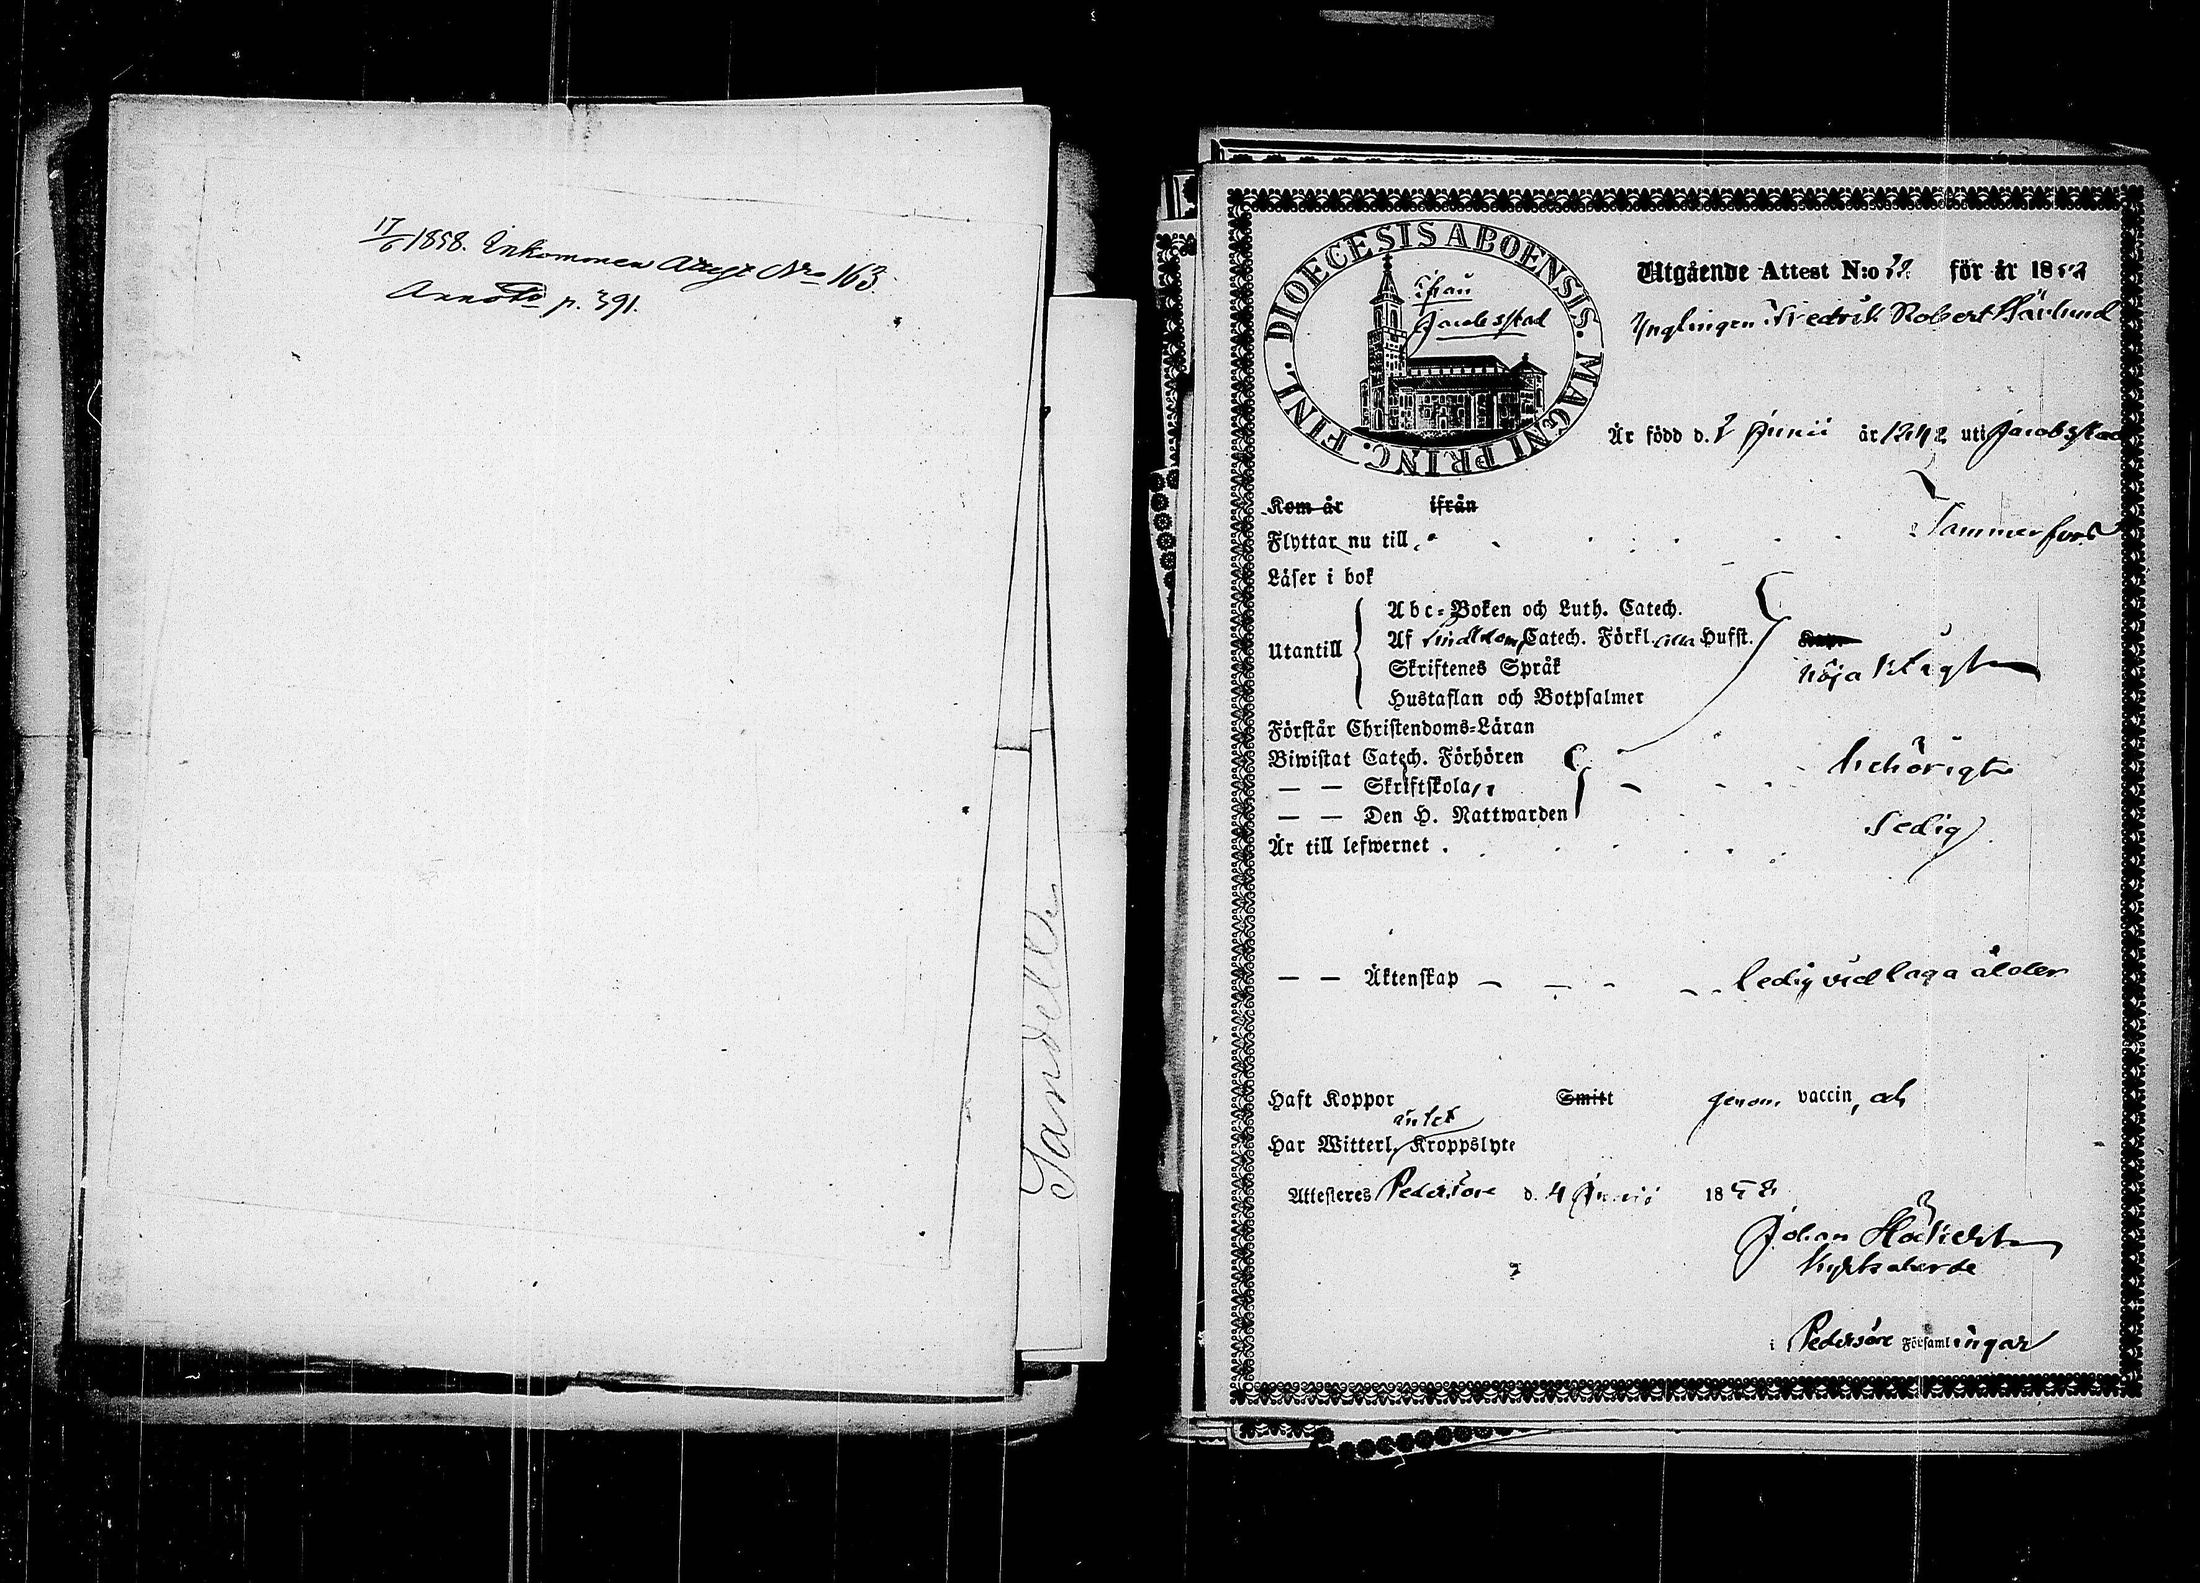 17/6 1858. Inkommen Attest Nro 163.
p. 391.
Sandell
DIOECESIS ABOENSIS. MAGNI PRINC. FINL.
ifrån
Jacobstad
Utgående Attest N:o för år 1858
Ynglingen Fredrik Robert
Är född d. 2 Junii år 1842 uti Jacobstad
Kom år ifrån
Flyttar nu till Tammerfors
Läser i bok
Utantill
Abc-Boken och Luth. Catech.
Af Catech. Förkl. Husst.
Skriftenes Språk
Hustaflan och Botpsalmer
nöjaktigt
Förstår Christendoms-Läran
Biwistat Catech. Förhören
— — Skriftskola
— — Den H. Nattwarden
behörigt
Är till lefwernet sedig
— — Äktenskap ledig vid laga ålder
Haft Koppor Smitt genom vaccin, och
intet
Har Witterl. Kroppslyte
Attesteres Pedersöre d. 4 Junii 1858
Johan
Kyrkoherde
i Pedersöre Församlingar